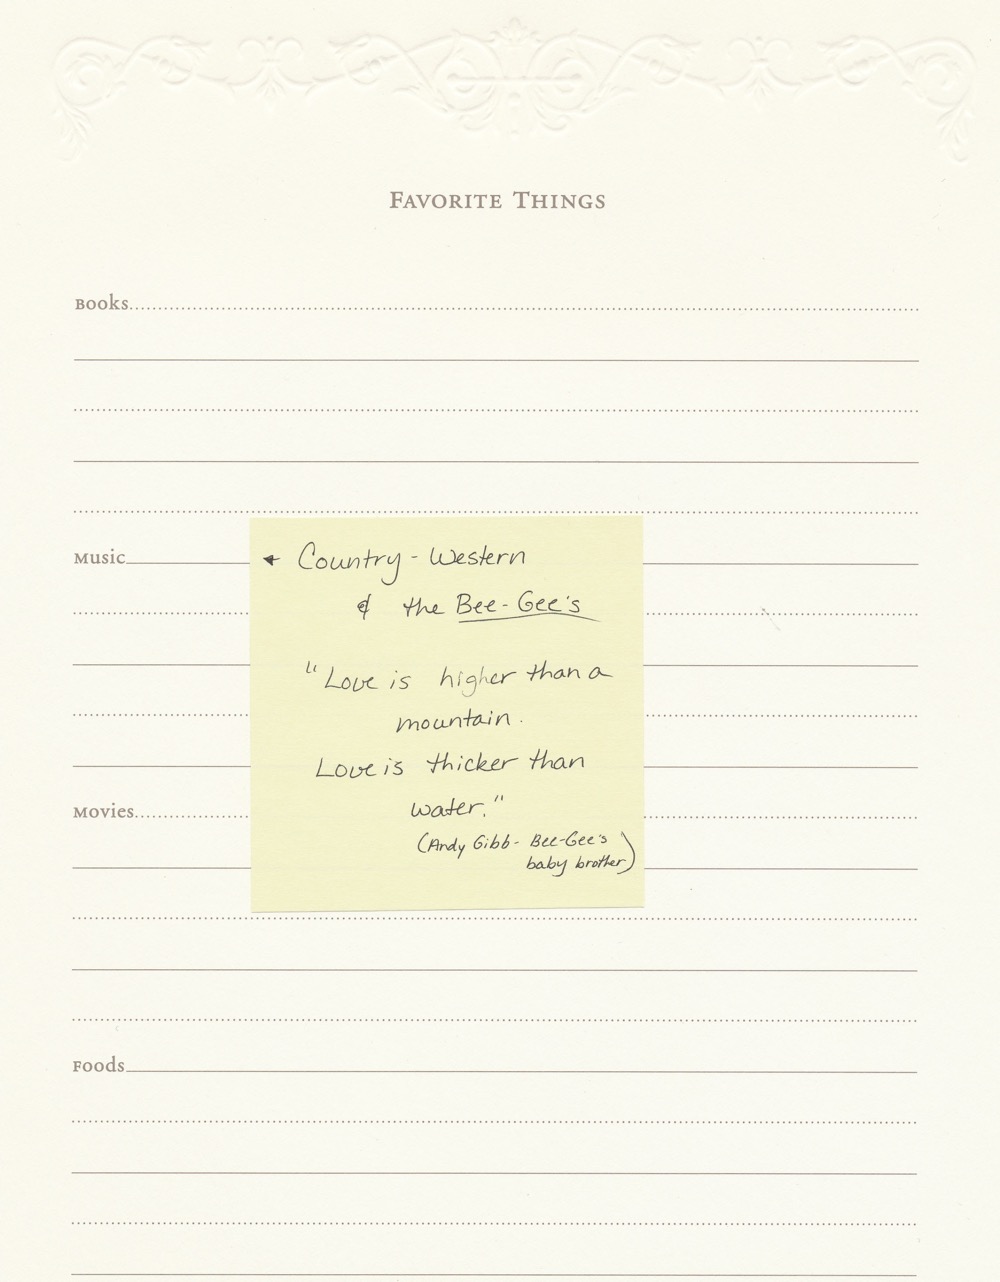 Favorite Things
Books
Music
← Country - Western
& the Bee-Gee's
"Love is higher than a
mountain.
Love is thicker than
water."
Movies
(Andy Gibb - Bee-Gee's
baby brother)
Foods